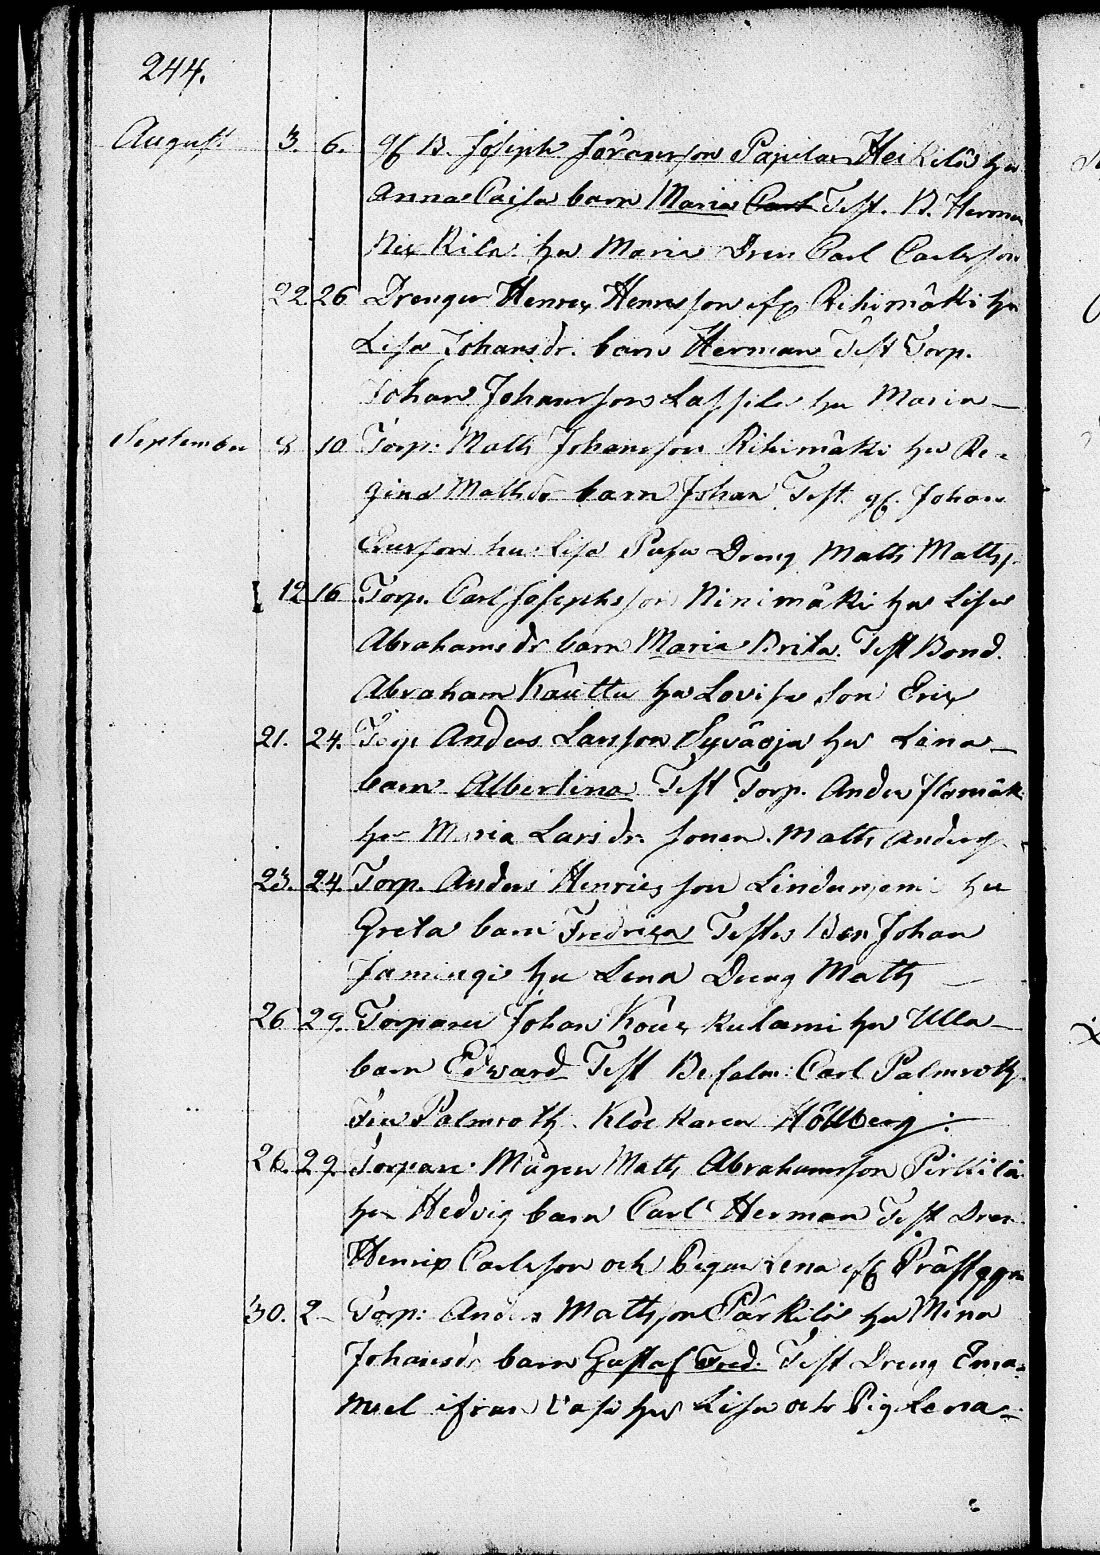 244.
August 3. 6. gf B. Joseph Jöransson Papilar Heikilä hu
Anna Caisa barn Maria Carl Test. B. Herman
Nix Kila hu Maria Dren Carl Carlsson
22 26 Drengen Henrix Henrisson Rihimäki hu
Lisa Johansdr. barn Herman Test Torp.
Johan Johansson Lassila hu Maria
September 8 10 Torp: Matts Johansson Rihimäki hu Re-
gina Mattsdr barn Johan Test. gf. Johan
Ericsson hu: Lisa Dreng Matts Matts
12 16 Torp. Carl Josephsson Ninimäki hu Lisa
Abrahamsdr barn Maria Brita. Test Bond.
Abraham Kauttu hu Lovisa Son Erix
21. 24. Torp Anders Larsson Syväoja hu Lena
barn Albertina Test Torp. Anders
hu Maria Larsdr. sonen Matts Anders
23. 24. Torp. Anders Henricsson hu
Greta barn Fredrica Testes Bon Johan
hu Lena Dreng Matts
26 29. Torpare Johan hu Ulla
barn Edward Test Befalm: Carl Palmroth
Fru Palmroth Klockaren Höllberg:
26. 29 Torpare Mågen Matts Abrahamsson Pirttilä
hu Hedvig barn Carl Herman Test Dren
Henrix Carlsson och Pigan Lena Prästggn
30. 2 Torp: Anders Mattsson Pärkilä hu Mina
Johansdr barn Gustaf Fred. Test Dreng Ema-
nuel ifran hu Lisa och Pig Lena